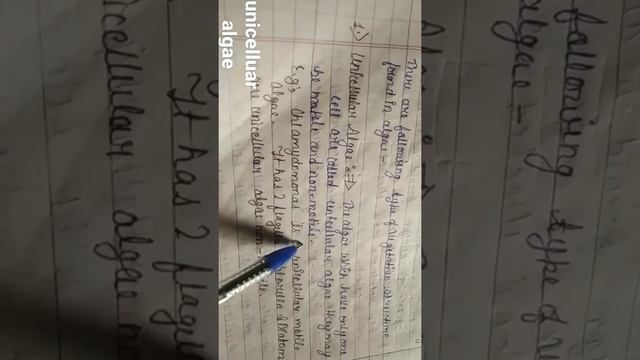 unicelluar
algae
There are following type of vegetative structure
found in algae -
1.) Unicellular Algae :→ The algae which have only one
cell are called unicellular algae they may
be motile and non-motile.
E.g., Chlamydomonas is unicellular motile
algae. It has 2 flage Chlorella & Diatom
unicellular algae non-
following type of
algae -
It has 2 flage
unicellular algae